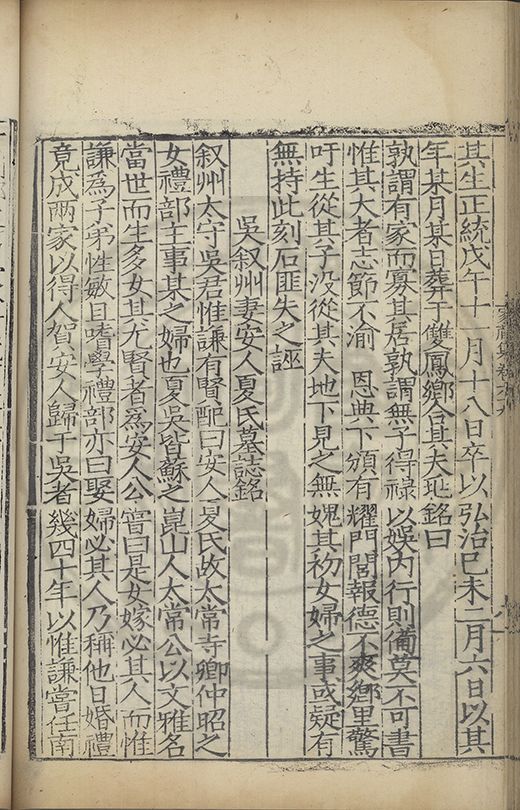 其生正統戊午十一月十八日卒以弘治己未二月六日以其
年某月某日葬于雙鳳鄉合其夫兆銘曰
孰謂有家而寡其居孰謂無子得祿以娛內行則備莫不可書
惟其大者志節不渝　恩典下頒有耀門閭報德不爽鄉里驚
吁生從其子沒從其夫地下見之無媿其初女婦之事或疑有
無持此刻石匪失之誣
吳叙州妻安人夏氏墓誌銘
叙州太守吳君惟謙有賢配曰安人夏氏故太常寺卿仲昭之
女禮部主事某之婦也夏吳皆蘇之崑山人太常公以文雅名
當世而生多女其尤賢者為安人公嘗曰是女嫁必其人而惟
謙為子弟性敏且嗜學禮部亦曰娶婦必其人乃稱他日婚禮
竟成兩家以得人賀安人歸于吳者幾四十年以惟謙嘗任南